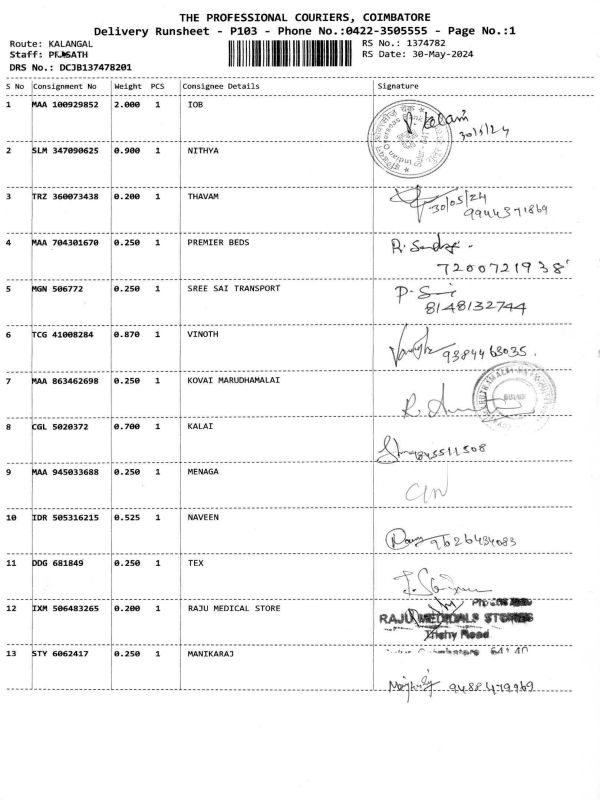 THE PROFESSIONAL COURIERS, COIMBATORE
Delivery Runsheet - P103 - Phone No.:0422-3505555 - Page No.:1
Route: KALANGAL RS No.: 1374782
Staff: RS Date: 30-May-2024
DRS No.: DCJB137478201
S No Consignment No Weight PCS Consignee Details Signature
1 MAA 100929852 2.000 1 IOB
30/5/24
2 SLM 347090625 0.900 1 NITHYA
3 TRZ 360073438 0.200 1 THAVAM
30/05/24
9944371869
4 MAA 704301670 0.250 1 PREMIER BEDS
7200721938
5 MGN 506772 0.250 1 SREE SAI TRANSPORT
8148132744
6 TCG 41008284 0.870 1 VINOTH
9384463035.
7 MAA 863462698 0.250 1 KOVAI MARUDHAMALAI
8 CGL 5020372 0.700 1 KALAI
9845511508
9 MAA 945033688 0.250 1 MENAGA
10 IDR 505316215 0.525 1 NAVEEN
9626434083
11 DDG 681849 0.250 1 TEX
12 IXM 506483265 0.200 1 RAJU MEDICAL STORE
RAJU MEDICALS STORES
Trichy Road
13 STY 6062417 0.250 1 MANIKARAJ
9488479969